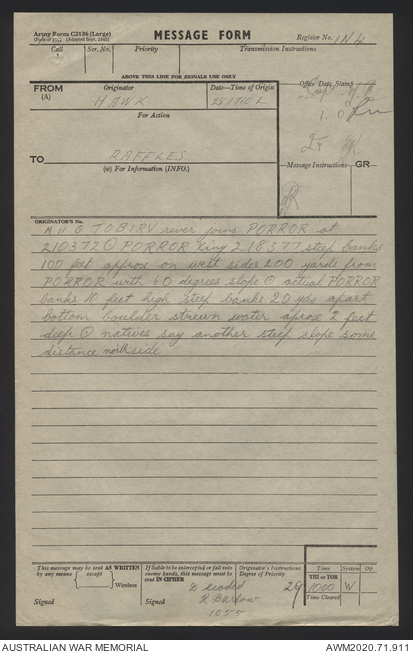 Army Form C2136 (Large)
MESSAGE FORM
Register No. 1N4
Call
Ser. No.
Priority
Transmission Instructions
ABOVE THIS LINE FOR SIGNALS USE ONLY
FROM
(A)
Originator
HAWK
Date—Time of Origin
281710L
Office Date Stamp
For Action
TO
RAFFLES
(w) For Information (INFO.)
Message Instructions
GR
ORIGINATOR'S No.
TOBIRV river joins PORROR at
210372 ⊙ PORROR Xing 218377 steep banks
100 feet approx on west sides 200 yards from
PORROR with 60 degrees slope ⊙ actual PORROR
banks 10 feet high steep banks 20 yds apart
bottom boulder strewn water aprox 2 feet
deep ⊙ natives say another steep slope some
distance north side
This message may be sent AS WRITTEN
by any means
except
Wireless
Signed
If liable to be intercepted or fall into
enemy hands, this message must be
sent IN CIPHER
Signed
R Barlow
1055
Originator's Instructions
Degree of Priority
29
Time
System
Op
THI or TOR
1000
W
Time Cleared
AUSTRALIAN WAR MEMORIAL
AWM2020.71.911